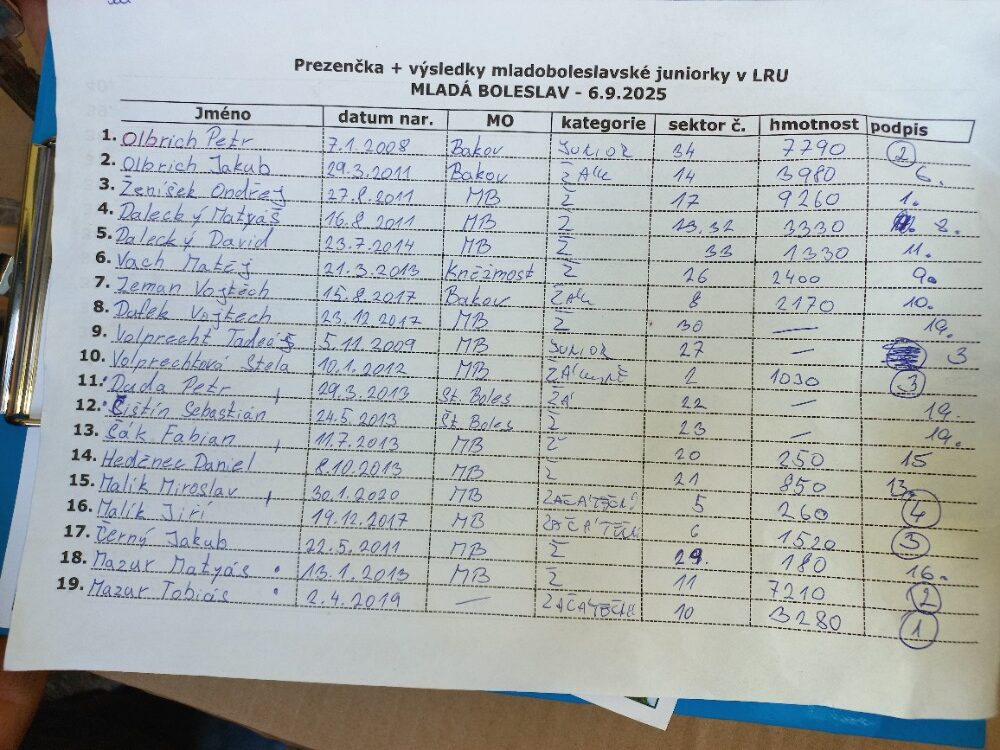 Prezenčka + výsledky mladoboleslavské juniorky v LRU
MLADÁ BOLESLAV - 6.9.2025
Jméno datum nar. MO kategorie sektor č. hmotnost podpis
1. Olbrich Petr 7.1.2008 Bakov JUNIOR 34 7790 2
2. Olbrich Jakub 29.3.2011 Bakov 14 3980 6.
3. Ženíšek Ondřej 27.8.2011 MB Ž 17 9260 1.
4. Dalecký Matyáš 16.8.2011 MB Ž 32 3330 8.
5. Dalecký David 23.7.2014 MB Ž 33 1330 11.
6. Vach Matěj 21.3.2013 Kněžmost Ž 26 2400 9.
7. Zeman Vojtěch 15.8.2017 Bakov 8 2170 10.
8. Vojtech 23.12.2017 MB Ž 30 — 19.
9. Volprecht Tadeáš 5.11.2009 MB JUNIOR 27 — 3
10. Volprechtová Stela 10.1.2012 MB 2 1030 3
11. Duda Petr 29.3.2013 St. Boles ŽÁ 22 — 19.
12. Čištín Sebastián 24.5.2013 St. Boles Ž 23 — 19.
13. Sák Fabian 11.7.2013 MB Ž 20 250 15
14. Heděnec Daniel 8.10.2013 MB Ž 21 850 13.
15. Malík Miroslav 30.1.2020 MB 5 260 4
16. Malík Jiří 19.12.2017 MB 6 1520 3
17. Černý Jakub 22.5.2011 MB Ž 29. 180 16.
18. Mazur Matyás 13.1.2013 MB Ž 11 7210 2
19. Mazar Tobiás 2.4.2019 — ZAČATEČNÍK 10 3280 1